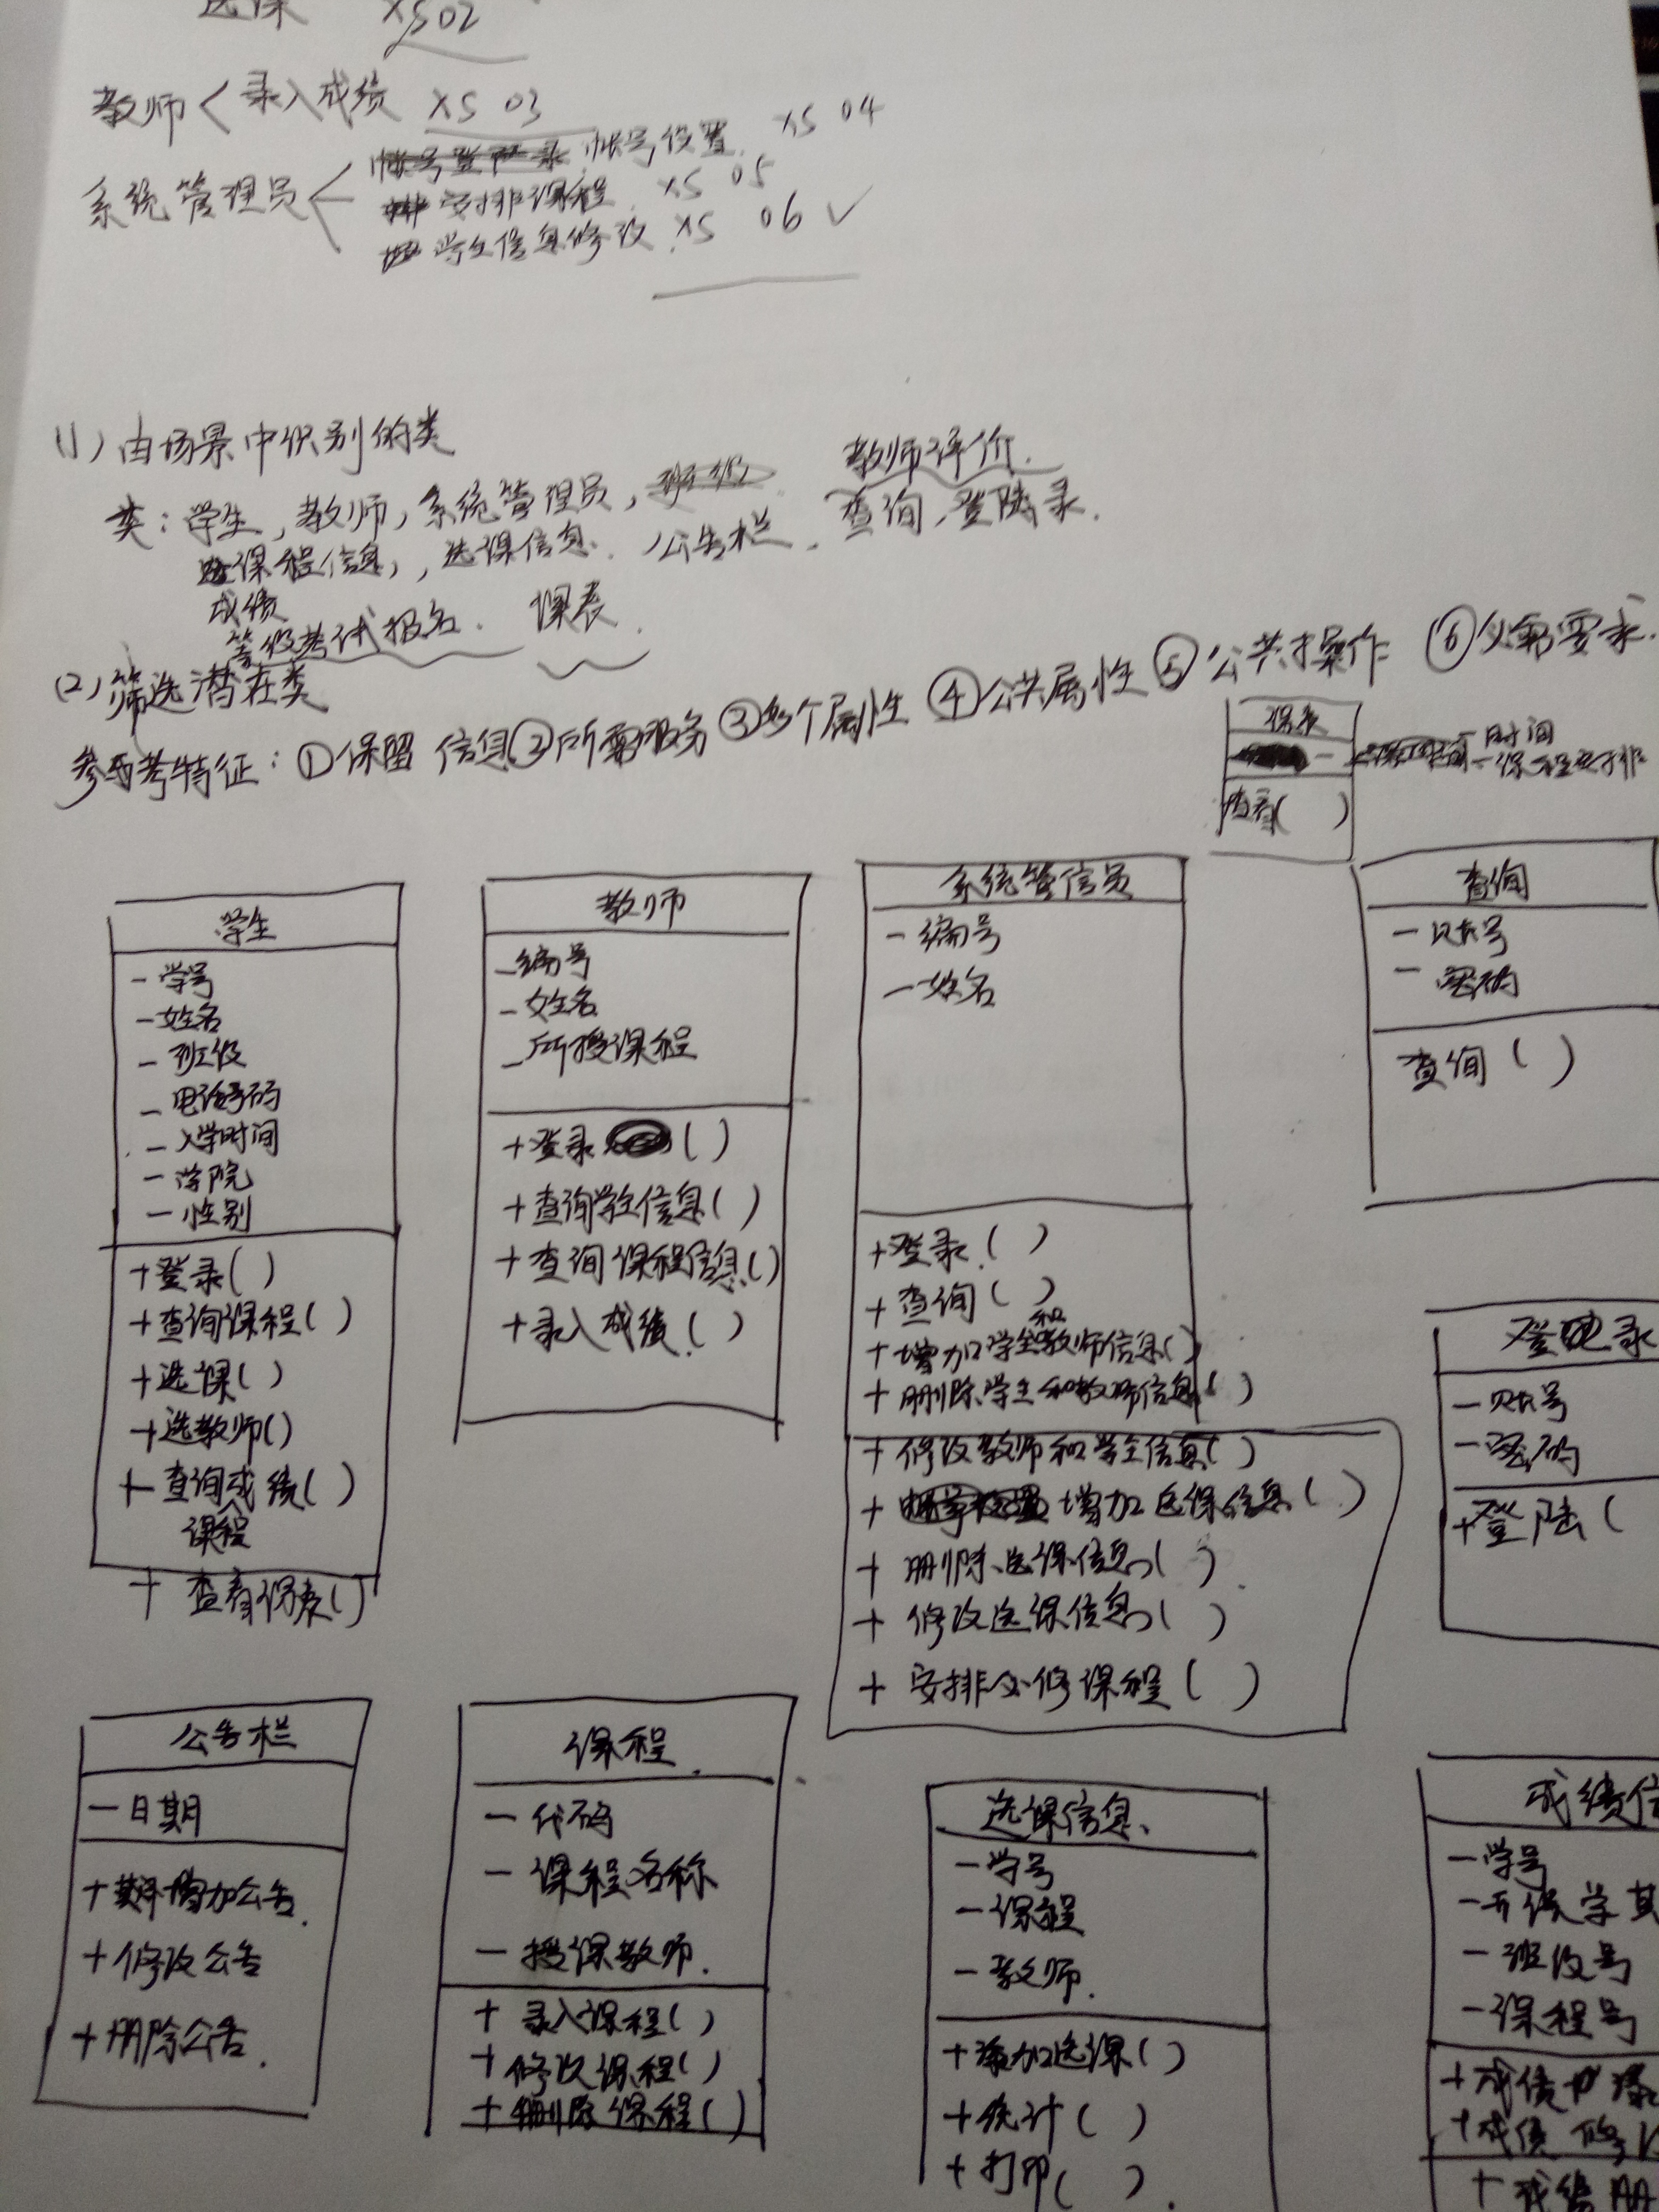 选课 XS02
教师 录入成绩 XS 03
帐号设置 XS 04
系统管理员 安排课程 XS 05
学生信息修改 XS 06 ✓
(1) 由场景中识别的类
教师评价.
类: 学生, 教师, 系统管理员, 班级 查询, 登录.
课程信息, 选课信息. 公告栏.
成绩
等级考试报名. 课表.
(2) 筛选潜在类
参考特征: ①保留信息 ②所需服务 ③多个属性 ④公共属性 ⑤公共操作 ⑥必需要求.
课表
-时间
-课程安排
查看( )
学生
-学号
-姓名
-班级
-电话号码
-入学时间
-学院
-性别
+登录( )
+查询课程( )
+选课( )
+选教师()
+查询成绩( )
课程
+查看课表()
教师
-编号
-姓名
-所授课程
+登录( )
+查询学生信息( )
+查询课程信息()
+录入成绩( )
系统管信员
-编号
-姓名
+登录( )
+查询( )
+增加学生和教师信息()
+删除学生和教师信息( )
+修改教师和学生信息( )
+增加选课信息( )
+删除选课信息( )
+修改选课信息( )
+安排必修课程( )
查询
-账号
-密码
查询( )
登录
-账号
-密码
+登陆(
公告栏
-日期
+增加公告.
+修改公告
+删除公告.
课程
-代码
-课程名称
-授课教师.
+录入课程( )
+修改课程( )
+删除课程( )
选课信息
-学号
-课程
-教师.
+添加选课( )
+统计( )
+打印( ).
成绩信
-学号
-开课学期
-班级号
-课程号
+成绩
+成绩修
+成绩删